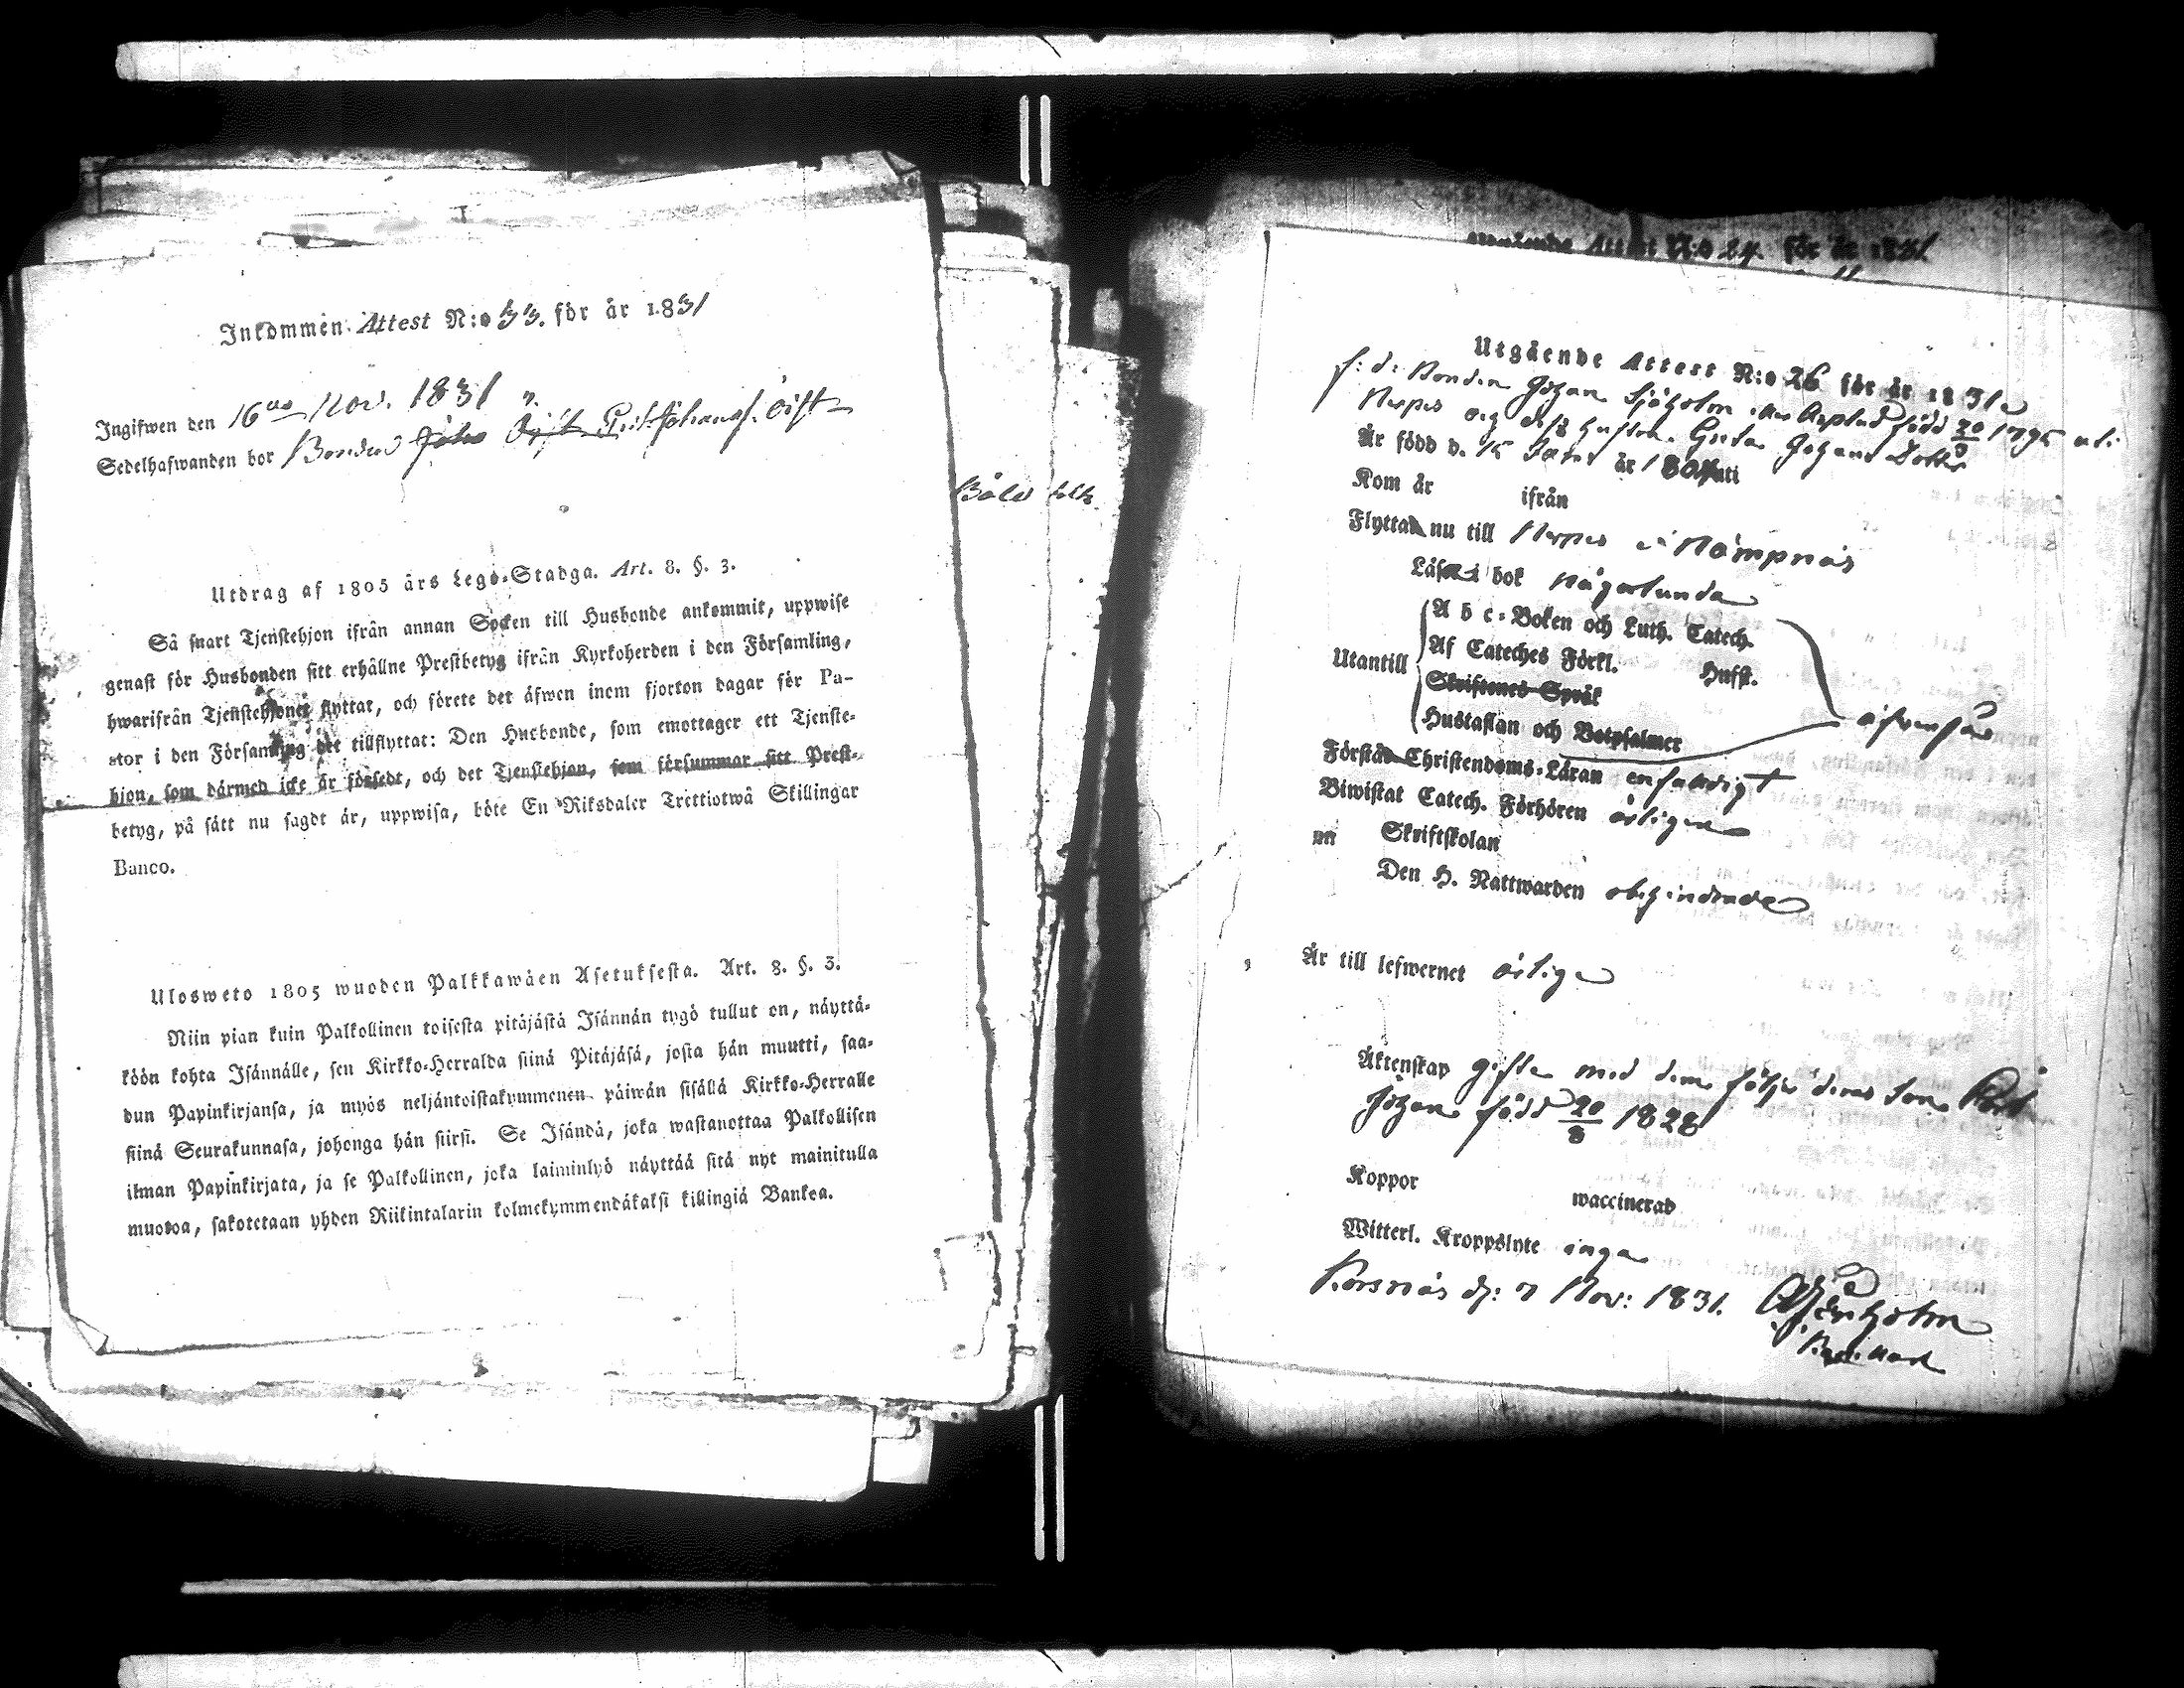 Inkommen Attest N:o 33. för år 1831
Ingifwen den 16de Nov. 1831
Sedelhafwanden bor
Utdrag af 1805 års Lego-Stadga. Art. 8. §. 3.
Så snart Tjenstehjon ifrån annan Socken till Husbonde ankommit, uppwise
genast för Husbonden sitt erhållne Prestbetyg ifrån Kyrkoherden i den Församling,
hwarifrån Tjenstehjonet flyttat, och förete det äfwen inom fjorton dagar för Pa-
stor i den Församling det tillflyttat: Den Husbonde, som emottager ett Tjenste-
hjon, som därmed icke är försedt, och det Tjenstehjon, som försummar sitt Prest-
betyg, på sätt nu sagdt är, uppwisa, böte En Riksdaler Trettiotwå Skillingar
Banco.
Ulosweto 1805 wuoden Palkkawäen Asetuksesta. Art. 8. §. 3.
Niin pian kuin Palkollinen toisesta pitäjästä Isännän tygö tullut on, näyttä-
köön kohta Isännälle, sen Kirkko-Herralda siinä Pitäjäsä, josta hän muutti, saa-
dun Papinkirjansa, ja myös neljäntoistakymmenen päiwän sisällä Kirkko-Herralle
siinä Seurakunnasa, johonga hän siirsi. Se Isändä, joka wastanottaa Palkollisen
ilman Papinkirjata, ja se Palkollinen, joka laiminlyö näyttää sitä nyt mainitulla
muotoa, sakotetaan yhden Riikintalarin kolmekymmendäkaksi killingiä Bankoa.
Utgående Attest N:o 24. för år 1831
Utgående Attest N:o 26 för år 1831
f: d: Bonden Johan Sjöholm född 20 1795 uti
Nerpes och dess hustru Greta Johans Dotter
Är född d. 15 år 1804 uti
Kom år ifrån
Flyttat nu till Nerpes Nämpnäs
Läser i bok någorlunda
Utantill
A b c-Boken och Luth. Catech.
Af Cateches Förkl. Husst.
Skriftenes Språk
Hustaflan och Botpsalmer
äfvenså
Förstår Christendoms-Läran enfaldigt
Biwistat Catech. Förhören årligen
Skriftskolan
Den H. Nattwarden obehindrade
Är till lefwernet ärliga
Äktenskap gifta med dem följer deras son
Johan född 20/8 1828
Koppor waccinerad
Witterl. Kroppslyte inga
Korsnäs d: 7 Nov: 1831.